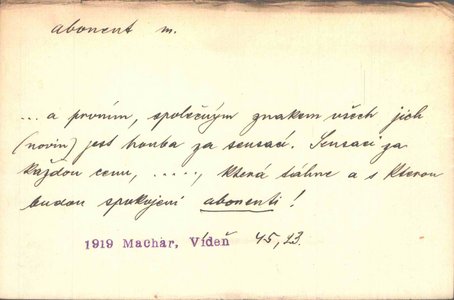 abonent m.
... a prvním, společným znakem všech jich
(novin) jest honba za sensací. Sensaci za
každou cenu, ....., která táhne a s kterou
budou spokojeni abonenti!
1919 Machar, Vídeň 45, 23.